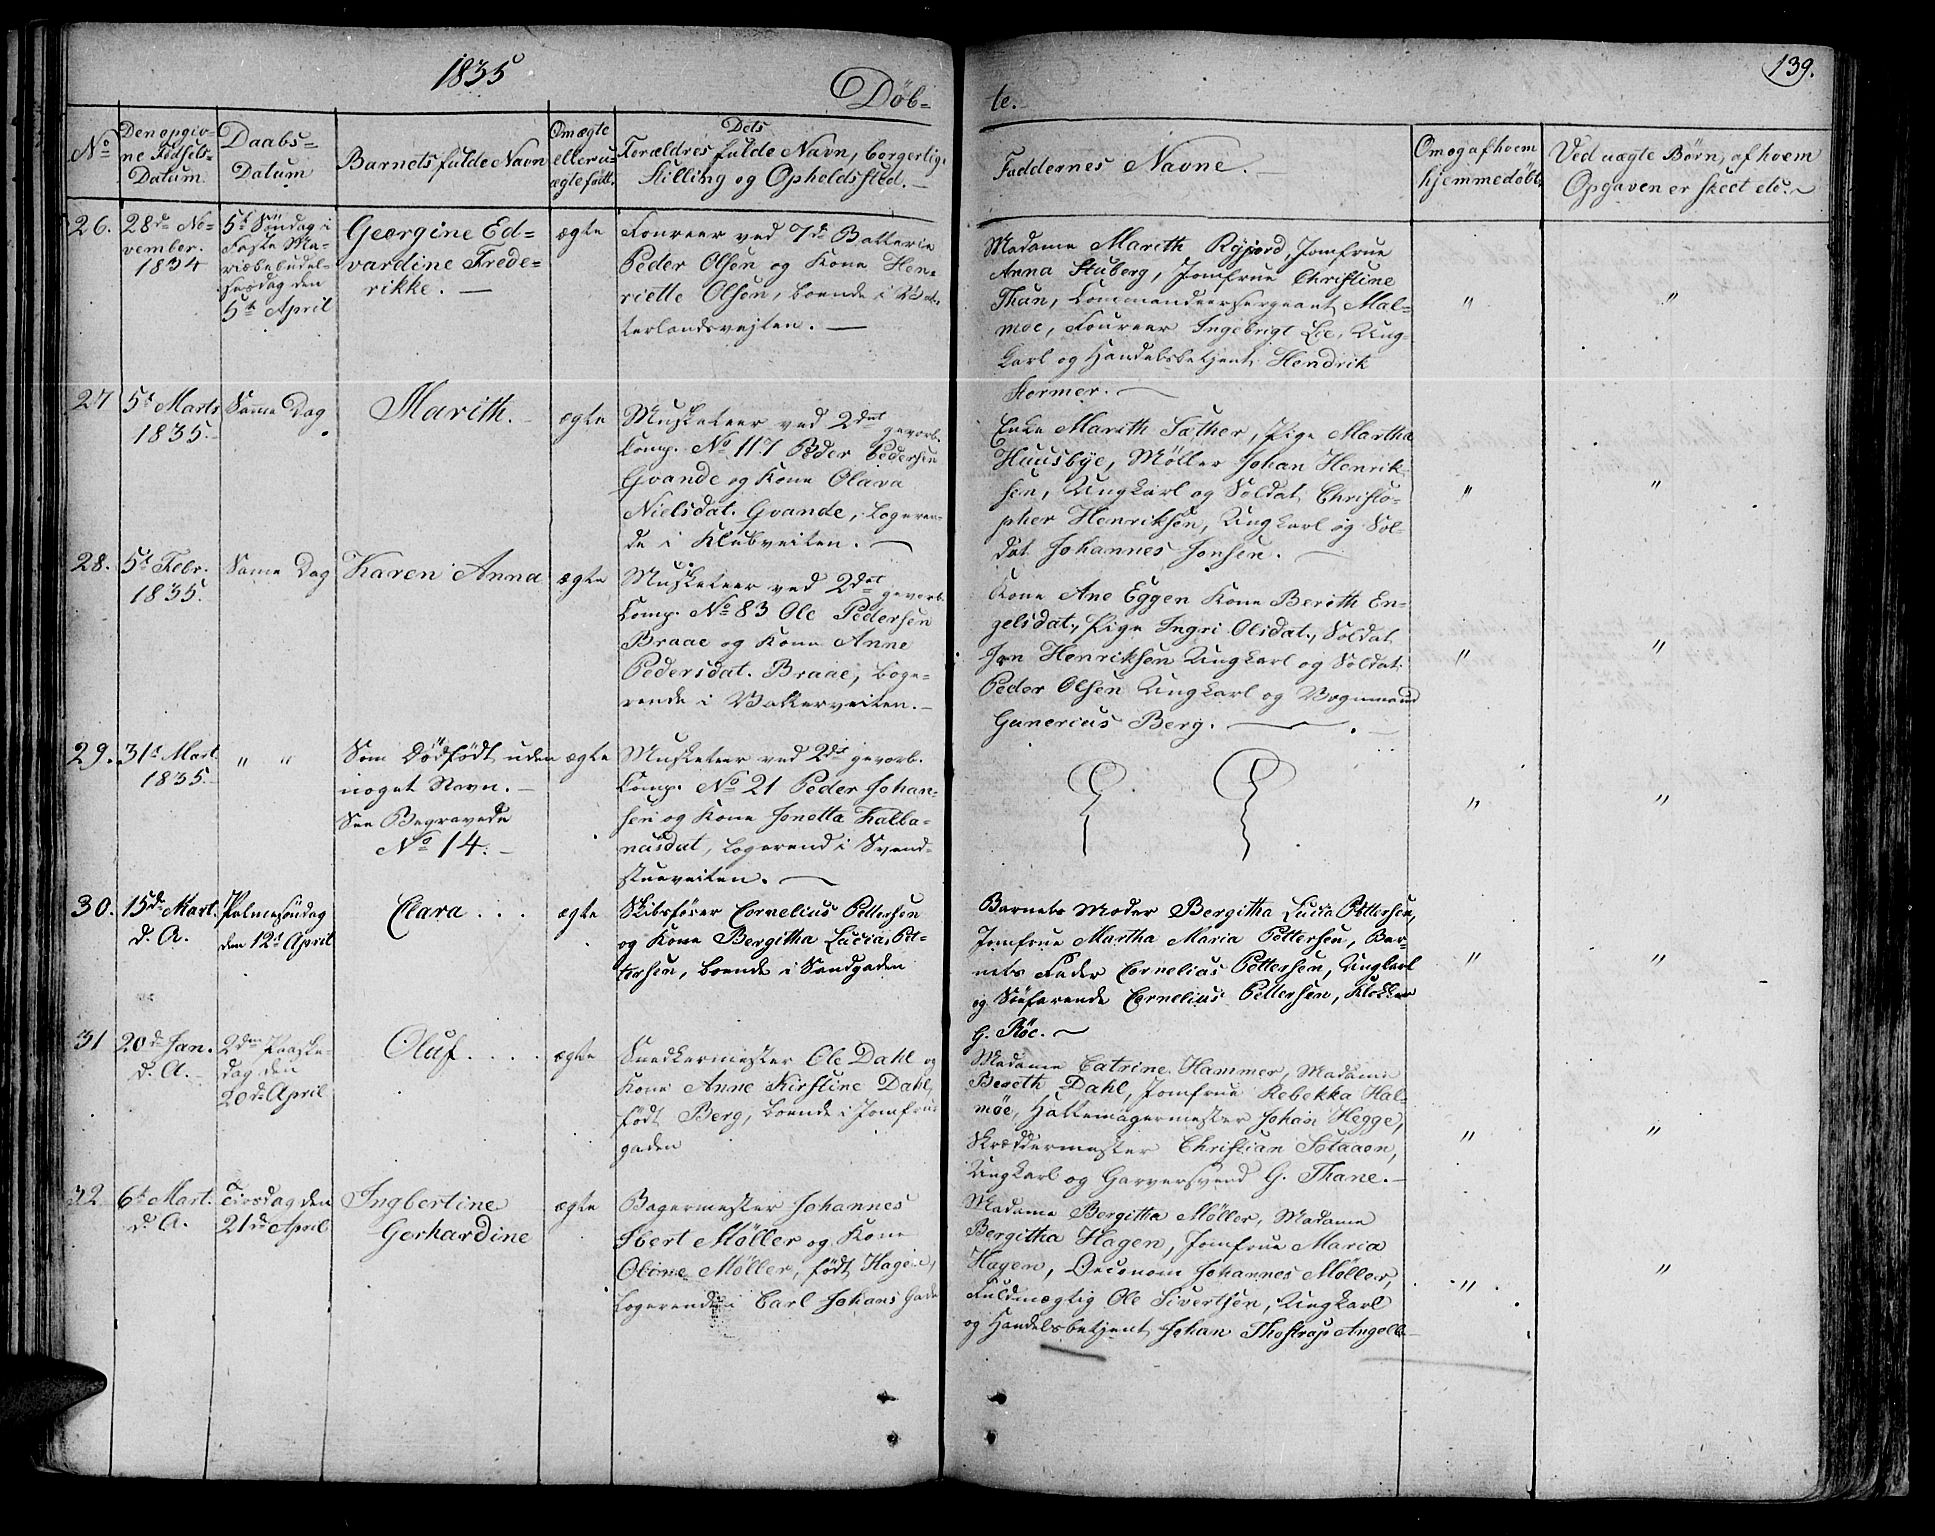 1835
139.
Döb=
te.
No
Den opgiv=
ne Fødsels-
Datum
Daabs=
Datum
Barnets fulde Navn
Om ægte
eller u=
ægte født.
Dets
Forældres fulde Navn, borgerlige
Stilling og Opholdssted.
Faddernes Navne.
Om og af hvem
hjemmedøbt
Ved uægte Børn, af hvem
Opgaven er skeet etc.
26.
28de No=
vember.
1834
5t Söndag i
Faste Ma=
riæbebudel=
sesdag den
5te April
Georgine Ed=
vardine Frede=
rikke.
ægte
Foureer ved 7de Batterie
Peder Olsen og Kone Hen=
riette Olsen, boende i Va=
terlandsvejten.
Madame Marith Ryjord, Jomfrue
Anna Stuberg, Jomfrue Christine
Thun, Commandeersergeant Mal=
moe, Foureer Ingebrigt Lie, Ung=
karl og Handelsbetjent Hendrik
Stormer.
"
"
27
5t Marts
1835.
Samme Dag
Marith.
ægte
Musketeer ved 2det gevorb.
Comp. No 117 Peder Pedersen
Gvande og Kone Olava
Nielsdat. Gvande, logeren=
de i Klubveiten.
Enke Marith Sæther, Pige Martha
Huusbye, Møller Johan Henrik=
sen, Ungkarl og Soldat Christo=
pher Henriksen, Ungkarl og Sol=
dat Johannes Jonsen.
"
"
28.
5t Febr.
1835.
Samme Dag
Karen Anna
ægte
Musketeer ved 2det gevorb.
Comp. No 83 Ole Pedersen
Braae og Kone Anne
Pedersdat. Braae, loge=
rende i Vatterveiten.
Kone Ane Eggen Kone Berith En=
gelsdat., Pige Ingri Olsdat., Soldat
Jon Henriksen Ungkarl og Soldat
Peder Olsen Ungkarl og Vognmand
Gunerius Berg.
"
"
29.
31t Mart
1835.
" "
Søn Dødfødt uden
noget Navn.
See Begravede
No 14.
ægte
Musketeer ved 2det gevorb.
Comp. No 21 Peder Johan=
sen og Kone Jonetta Halba=
nusdat, logerend i Svend=
stueveiten.
"
"
30.
15de Mart.
d. A.
Palmesöndag
den 12t April
Clara . . .
ægte
Skibsfører Cornelius Pettersen
og Kone Bergitha Lucia Pet=
tersen, boende i Sandgaden
Barnets Moder Bergitha Lucia Pettersen,
Jomfrue Martha Maria Pettersen, Bar=
nets Fader Cornelius Pettersen, Ungkarl
og Söefarende Cornelius Pettersen, Klokker
G. Röe.
"
"
31
20de Jan.
d. A.
2den Paaske=
dag den
20de April
Oluf . . . .
ægte
Snedkermester Ole Dahl og
Kone Anne Kirstine Dahl,
født Berg, boende i Jomfrue
gaden
Madame Catrine Hammer, Madame
Bereth Dahl, Jomfrue Rebekka Hal=
möe, Hattemagermester Johan Hegge,
Skræddermester Christian Staaen,
Ungkarl og Garversvend G. Thane.
"
"
32
6te Mart.
d. A.
Tirsdag den
21de April
Ingbertine
Gerhardine
ægte
Bagermester Johannes
Ibert Møller og Kone
Oline Møller, født Hagen,
Logerende i Carl Johans Gade
Madame Bergitha Møller, Madame
Bergitha Hagen, Jomfrue Maria
Hagen, Oeconom Johannes Møller,
Fuldmægtig Ole Sivertsen, Ungkarl
og Handelsbetjent Johan Thostrup Angell
"
"